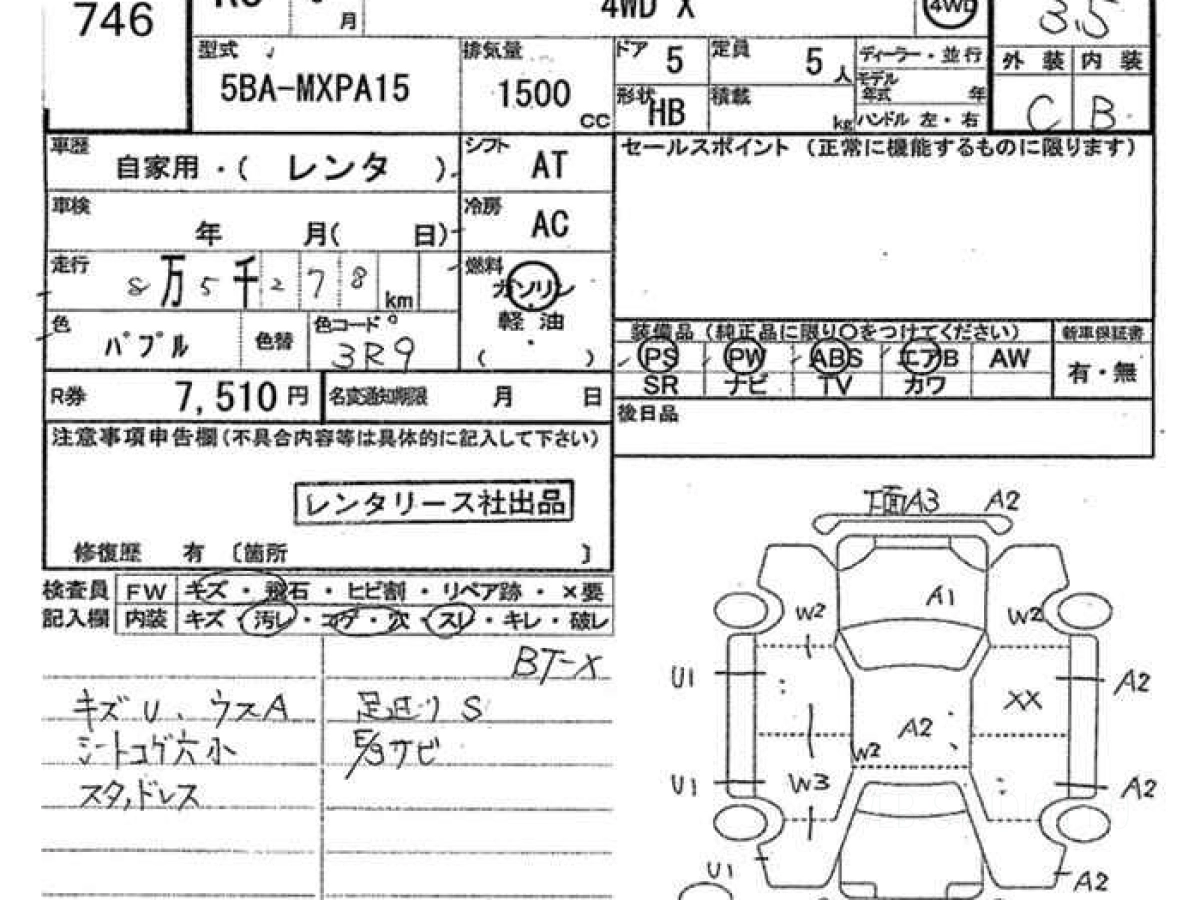 746
月
4WD X
4WD
3.5
型式
5BA-MXPA15
排気量
1500
CC
ドア
5
定員
5
人
ディーラー・並行
モデル
年式
年
形状
HB
積載
kg
ハンドル 左・右
外装
内装
C
B
車歴
自家用・( レンタ )
シフト
AT
セールスポイント (正常に機能するものに限ります)
車検
年 月( 日)
冷房
AC
走行
8万5千278km
燃料
ガソリン
軽油
( )
色
パプル
色替
色コード
3R9
装備品 (純正品に限り○をつけてください)
新車保証書
PS PW ABS エアB AW
SR ナビ TV カワ
有・無
R券
7,510円
名変通知期限
月 日
後日品
注意事項申告欄(不具合内容等は具体的に記入して下さい)
レンタリース社出品
修復歴 有 〔箇所 〕
検査員
記入欄
FW
キズ・飛石・ヒビ割・リペア跡・×要
内装
キズ・汚レ・コゲ・穴・スレ・キレ・破レ
BT-X
キズU、ウスA
足廻りS
シートコゲ穴小
E/gサビ
スタッドレス
下面A3 A2
A1
W2
W2
U1
A2
XX
A2
W2
U1
W3
A2
U1
A2